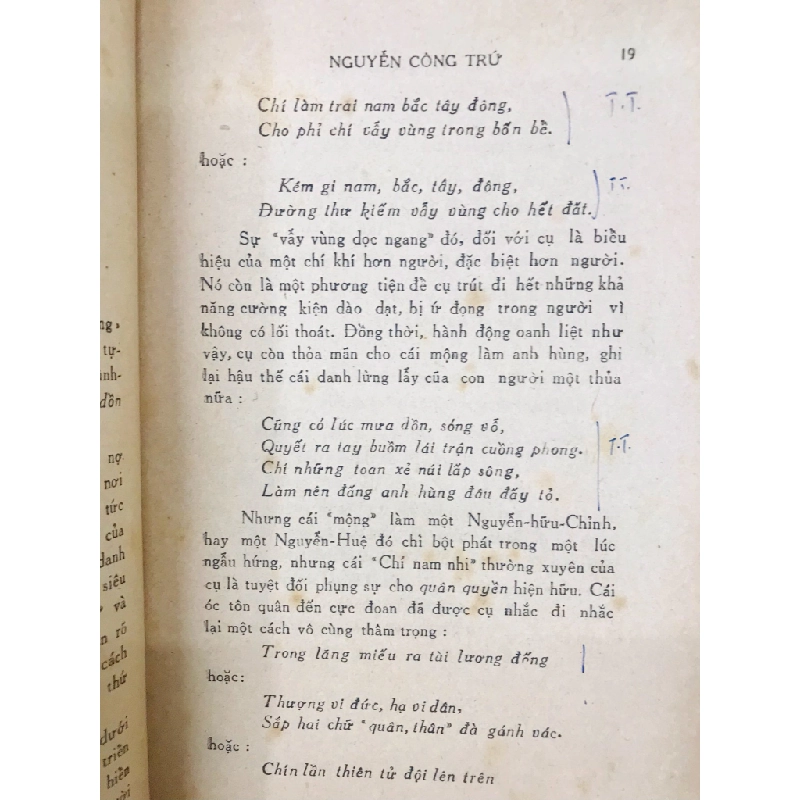 NGUYỄN CÔNG TRỨ
19
Chí làm trai nam bắc tây đông,
Cho phỉ chí vẫy vùng trong bốn bề.
T.T.
hoặc :
Kém gi nam, bắc, tây, đông,
Đường thư kiếm vẫy vùng cho hết đất.
T.T.
Sự "vẫy vùng dọc ngang" đó, đối với cụ là biểu
hiệu của một chí khí hơn người, đặc biệt hơn người.
Nó còn là một phương tiện để cụ trút đi hết những khả
năng cường kiện dào dạt, bị ứ đọng trong người vì
không có lối thoát. Đồng thời, hành động oanh liệt như
vậy, cụ còn thỏa mãn cho cái mộng làm anh hùng, ghi
lại hậu thế cái danh lừng lẫy của con người một thủa
nữa :
Cũng có lúc mưa dồn, sóng vỗ,
Quyết ra tay buồm lái trận cuồng phong.
Chí những toan xẻ núi lấp sông,
Làm nên đấng anh hùng đâu đấy tỏ.
T.T.
Nhưng cái "mộng" làm một Nguyễn-hữu-Chỉnh,
hay một Nguyễn-Huệ đó chỉ bột phát trong một lúc
ngẫu hứng, nhưng cái "Chí nam nhi" thường xuyên của
cụ là tuyệt đối phụng sự cho quân quyền hiện hữu. Cái
óc tôn quân đến cực đoan đã được cụ nhắc đi nhắc
lại một cách vô cùng thâm trọng :
Trong lăng miếu ra tài lương đống
hoặc:
Thượng vi đức, hạ vi dân,
Sắp hai chữ "quân, thân" đà gánh vác.
hoặc :
Chín lần thiên tử đội lên trên
ng»
tự-
ình-
dồn
nợ
nơi
tức
của
danh
siêu
và
rõ
cách
thứ
dưới
triền
hiền